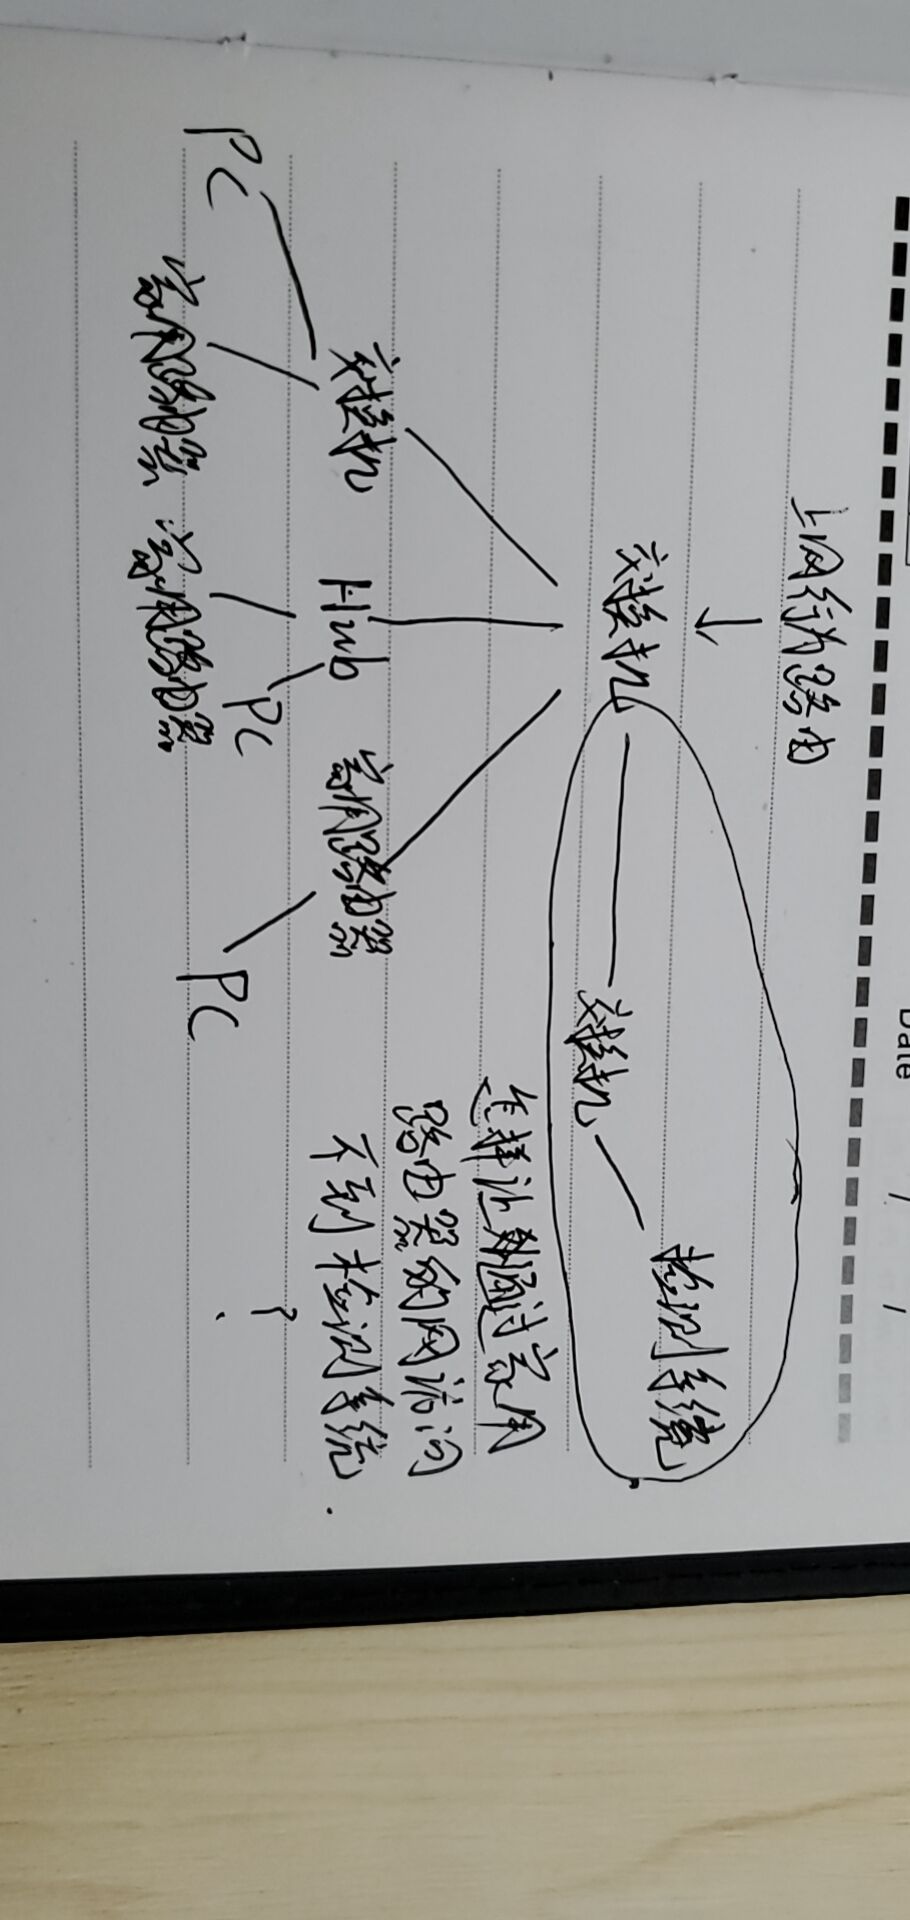 Date / /
上网行为路由
↓
交换机
交换机
检测系统
交换机
Hub
家用路由器
PC
家用路由器
家用路由器
PC
PC
怎样让通过家用
路由器的网访问
不到检测系统.
?